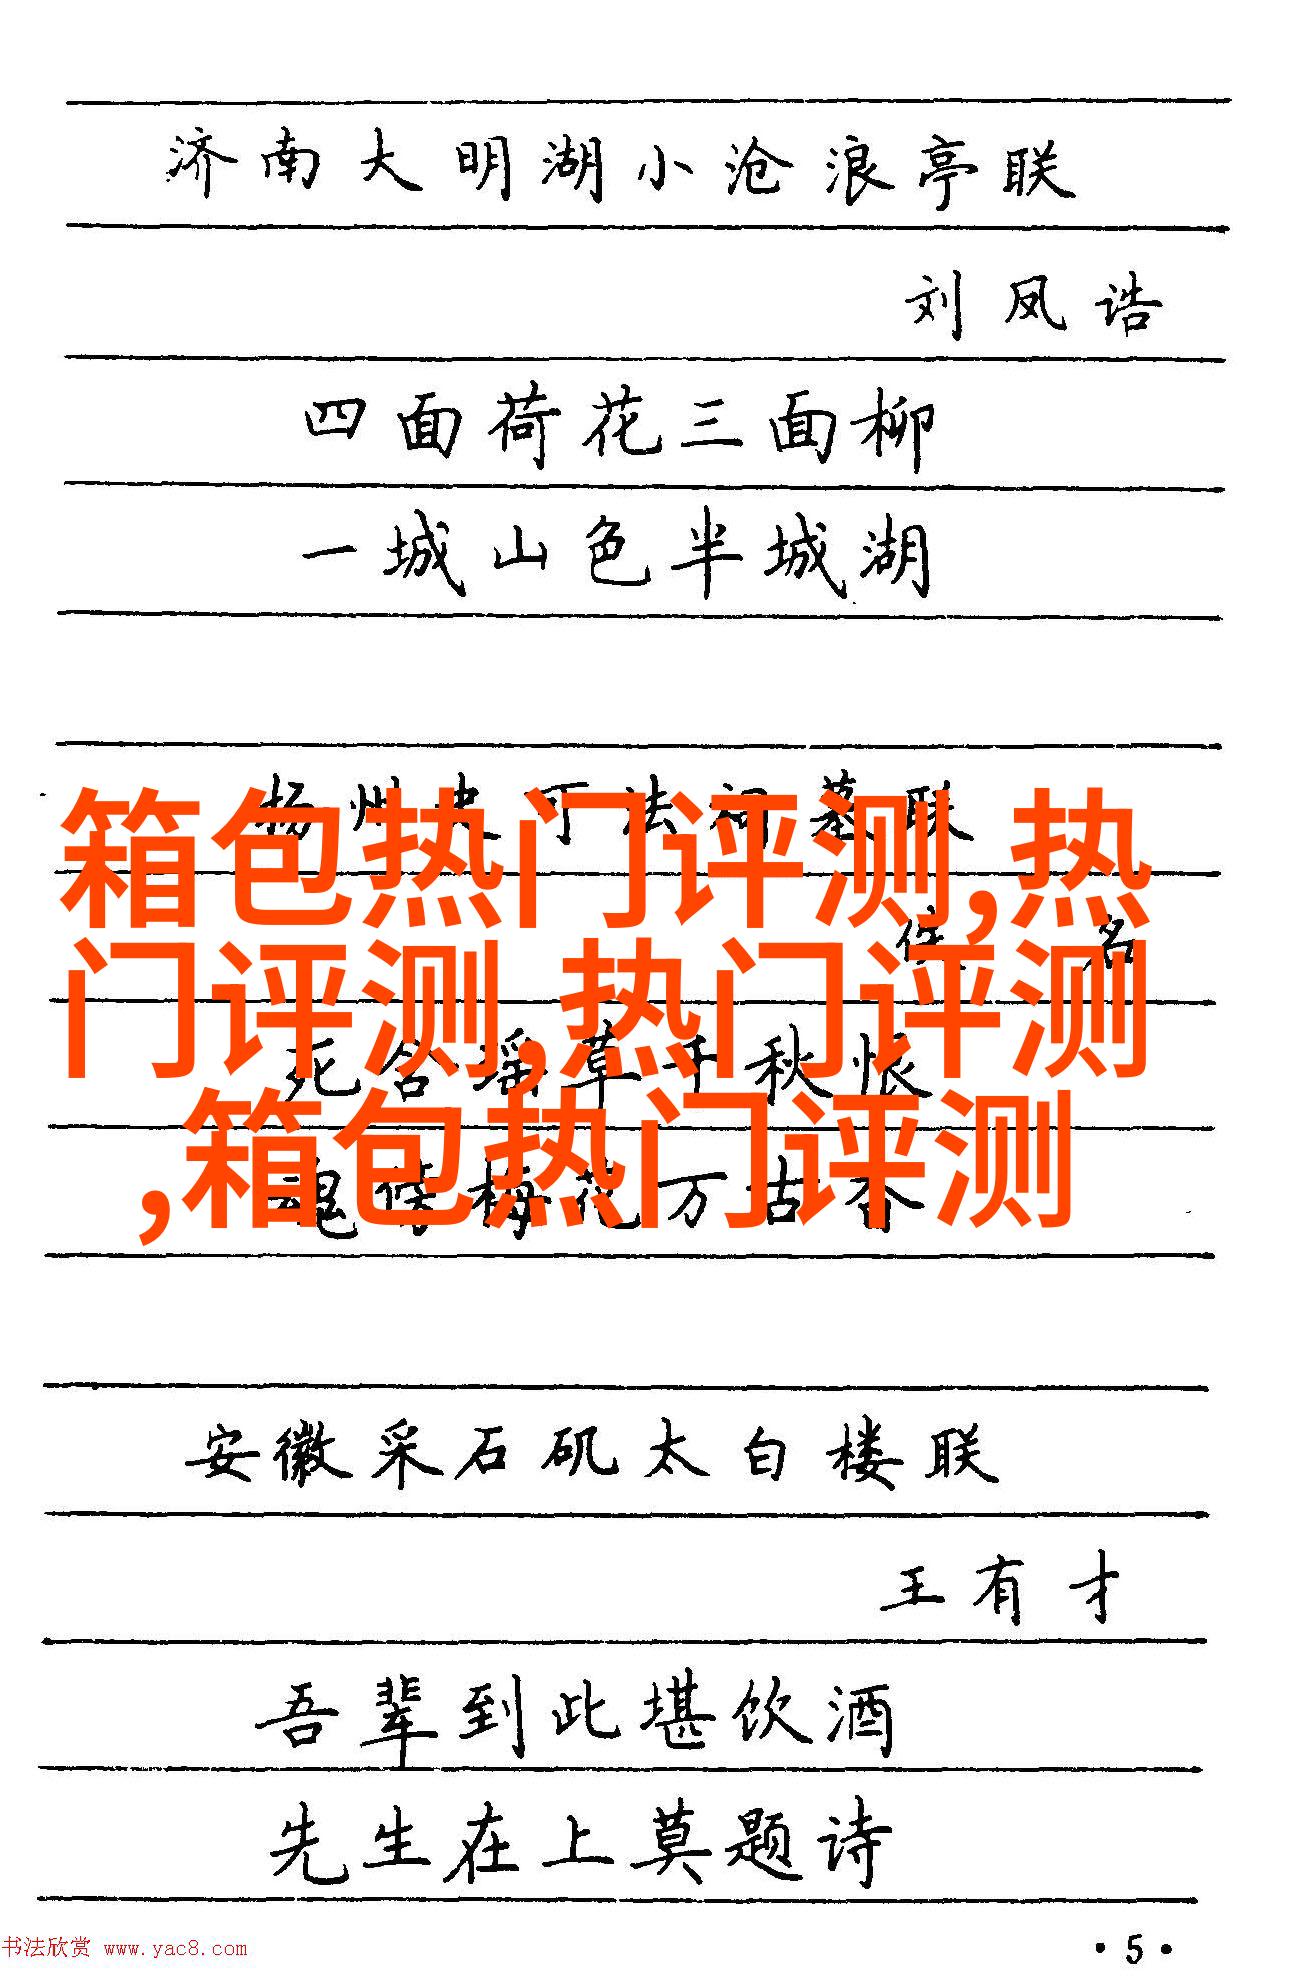 济南大明湖小沧浪亭联
刘凤诰
四面荷花三面柳
一城山色半城湖
扬州史可法祠墓联
佚名
死合瑶草千秋恨
魂傍梅花万古香
箱包热门评测,热
门评测,热门评测
,箱包热门评测
安徽采石矶太白楼联
王有才
吾辈到此堪饮酒
先生在上莫题诗
书法欣赏 www.yac8.com
·5·